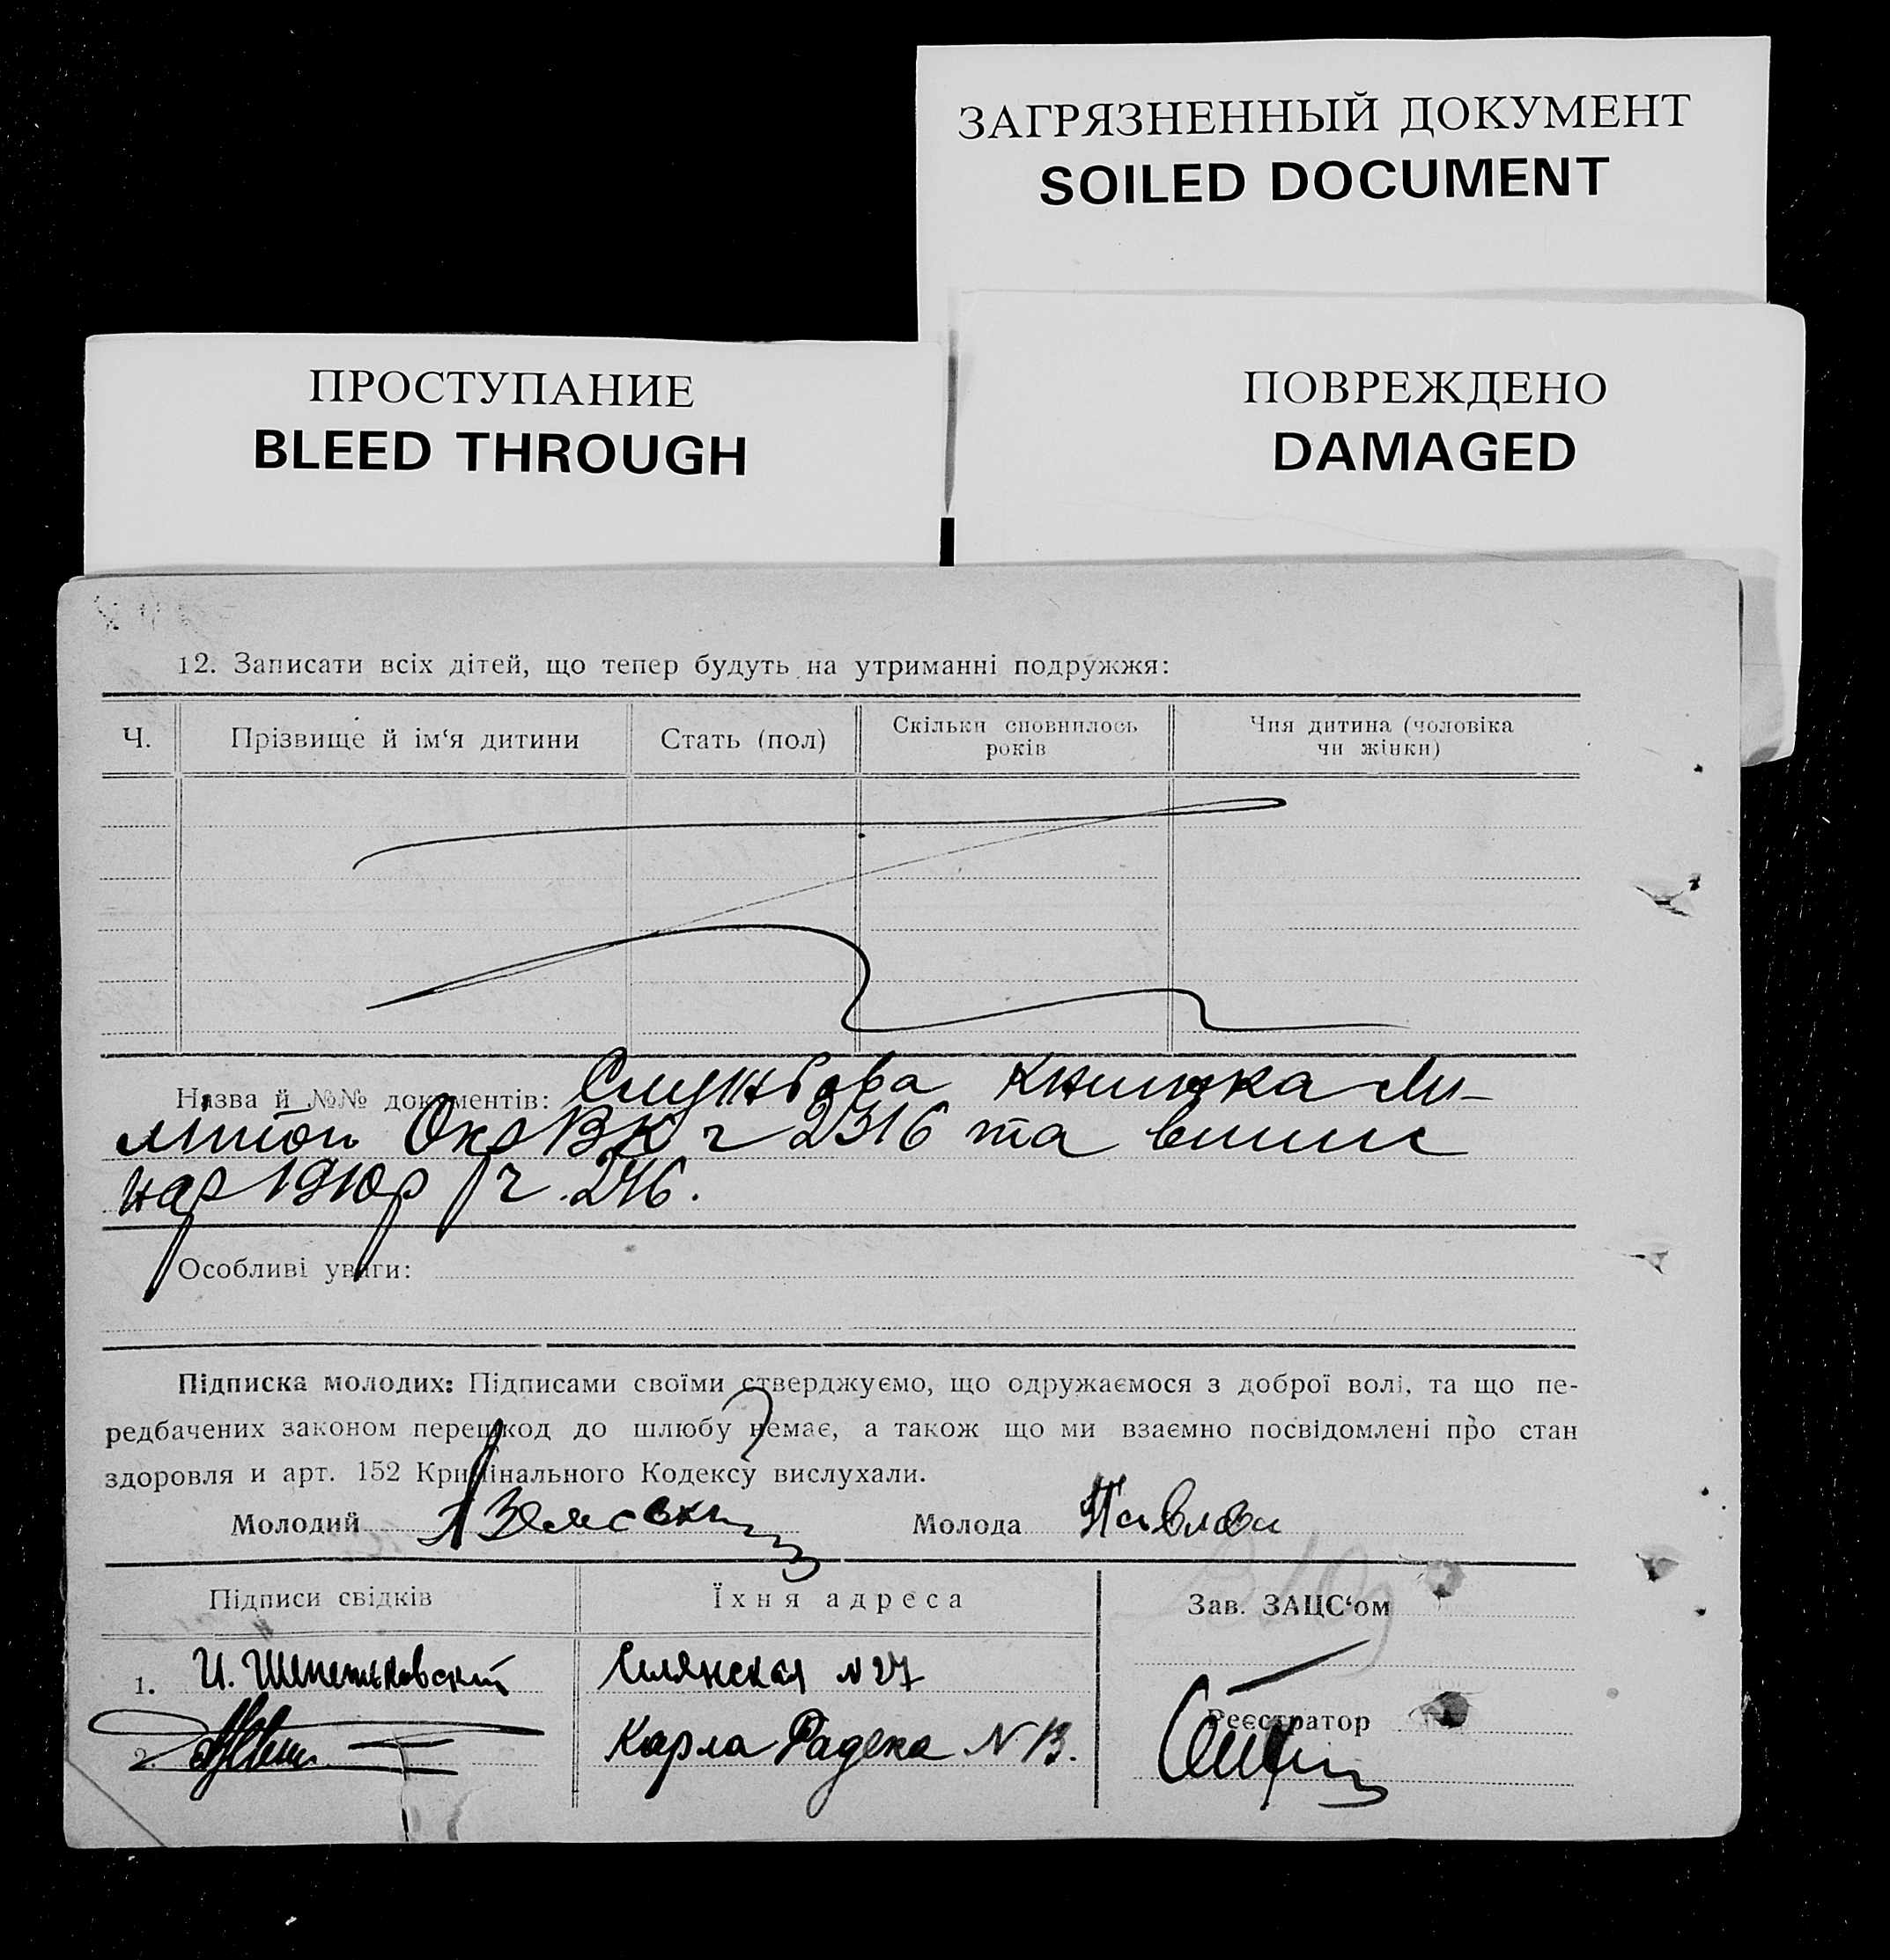 ЗАГРЯЗНЕННЫЙ ДОКУМЕНТ
SOILED DOCUMENT
ПРОСТУПАНИЕ
BLEED THROUGH
ПОВРЕЖДЕНО
DAMAGED
12. Записати всіх дітей, що тепер будуть на утриманні подружжя:
Ч. Прізвище й ім‘я дитини Стать (пол) Скільки сповнилось років Чия дитина (чоловіка чи жінки)
Назва й №№ документів: Службова книжка Мі-
ліції ОкрВК ч 2316 та випис
нар 1910р ч. 246.
Особливі уваги:
Підписка молодих: Підписами своїми стверджуємо, що одружаємося з доброї волі, та що пе-
редбачених законом перешкод до шлюбу немає, а також що ми взаємно посвідомлені про стан
здоровля и арт. 152 Кримінального Кодексу вислухали.
Молодий Молода Павлова
Підписи свідків Їхня адреса Зав. ЗАЦС‘ом
1. И. Шепетьковский №27
2. Карла Радека N 13.
Реєстратор